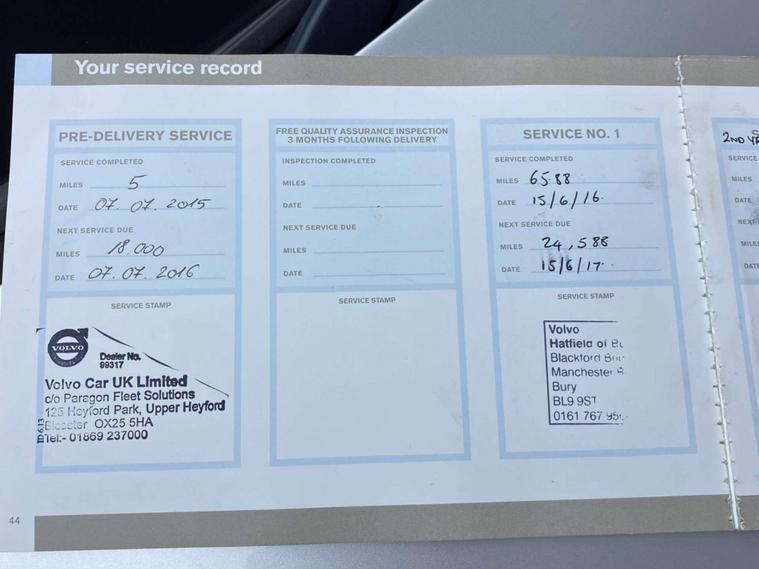 Your service record
PRE-DELIVERY SERVICE
SERVICE COMPLETED
MILES 5
DATE 07.07.2015
NEXT SERVICE DUE
MILES 18.000
DATE 07.07.2016
SERVICE STAMP
VOLVO
Dealer No.
99317
Volvo Car UK Limited
c/o Paragon Fleet Solutions
125 Heyford Park, Upper Heyford
Bicester OX25 5HA
Tel:- 01869 237000
FREE QUALITY ASSURANCE INSPECTION
3 MONTHS FOLLOWING DELIVERY
INSPECTION COMPLETED
MILES
DATE
NEXT SERVICE DUE
MILES
DATE
SERVICE STAMP
SERVICE NO. 1
SERVICE COMPLETED
MILES 6588
DATE 15/6/16.
NEXT SERVICE DUE
MILES 24,588
DATE 15/6/17.
SERVICE STAMP
Volvo
Hatfield of
Blackford
Manchester
Bury
BL9 9ST
0161 767
2ND
SERVICE
MILES
DATE
NEXT
MILES
DATE
44